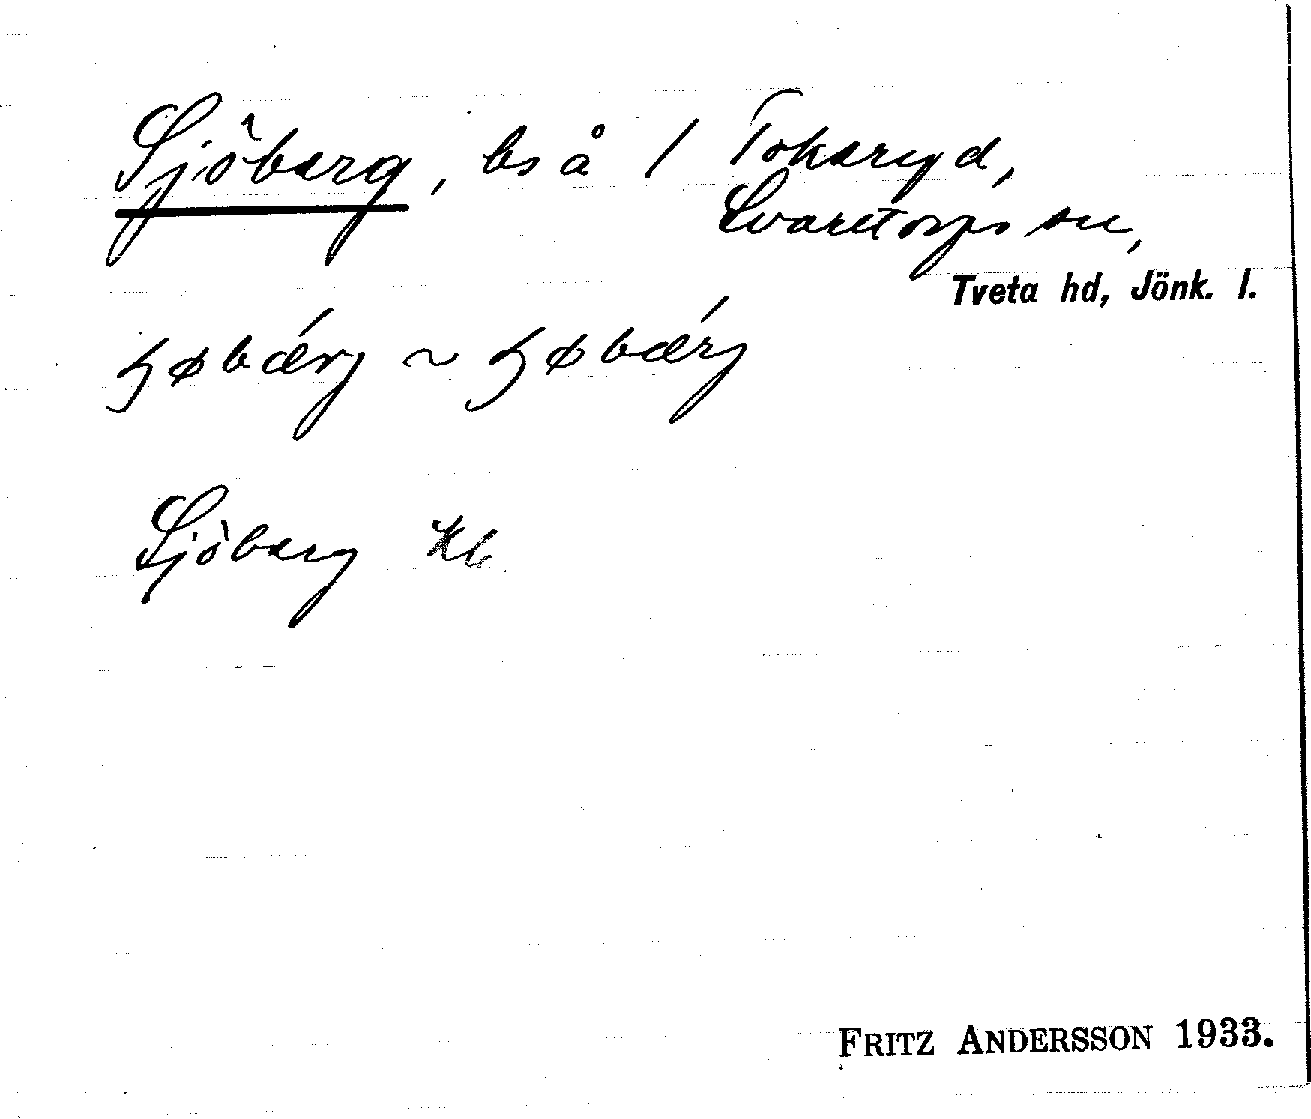 Sjöberg, bs å 1 Tokeryd,
Svarttorps sn,
Tveta hd, Jönk. l.
Sjöberg Kb
FRITZ ANDERSSON 1933.